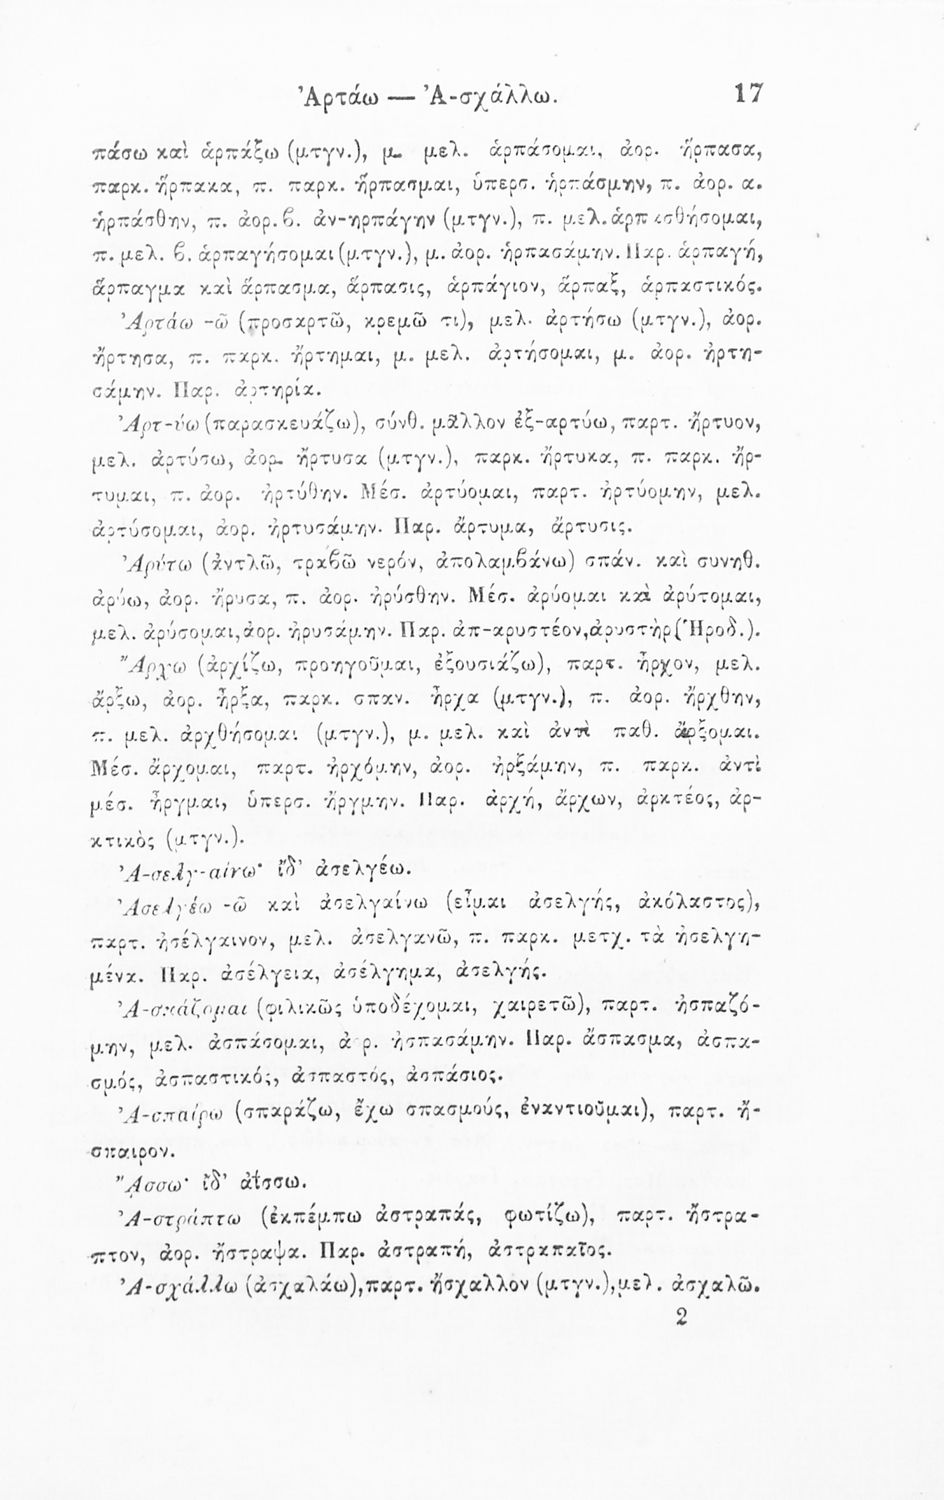 Ἀρτάω — Ἀ-σχάλλω. 17
πάσω καὶ ἁρπάξω (μτγν.), μ. μελ. ἁρπάσομαι, ἀορ. ἥρπασα,
παρκ. ἥρπακα, π. παρκ. ἥρπασμαι, ὑπερσ. ἡρπάσμην, π. ἀορ. α.
ἡρπάσθην, π. ἀορ. β. ἀν-ηρπάγην (μτγν.), π. μελ. ἁρπασθήσομαι,
π. μελ. β. ἁρπαγήσομαι (μτγν.), μ. ἀορ. ἡρπασάμην. Παρ. ἁρπαγή,
ἅρπαγμα καὶ ἅρπασμα, ἅρπασις, ἁρπάγιον, ἅρπαξ, ἁρπαστικός.
Ἀρτάω -ῶ (προσαρτῶ, κρεμῶ τι), μελ. ἀρτήσω (μτγν.), ἀορ.
ἤρτησα, π. παρκ. ἤρτημαι, μ. μελ. ἀρτήσομαι, μ. ἀορ. ἠρτη-
σάμην. Παρ. ἀρτηρία.
Ἀρτ-ύω (παρασκευάζω), σύνθ. μᾶλλον ἐξ-αρτύω, παρτ. ἤρτυον,
μελ. ἀρτύσω, ἀορ. ἤρτυσα (μτγν.), παρκ. ἤρτυκα, π. παρκ. ἤρ-
τυμαι, π. ἀορ. ἠρτύθην. Μέσ. ἀρτύομαι, παρτ. ἠρτύομην, μελ.
ἀρτύσομαι, ἀορ. ἠρτυσάμην. Παρ. ἄρτυμα, ἄρτυσις.
Ἀρύτω (ἀντλῶ, τραβῶ νερόν, ἀπολαμβάνω) σπάν. καὶ συνηθ.
ἀρύω, ἀορ. ἤρυσα, π. ἀορ. ἠρύσθην. Μέσ. ἀρύομαι καὶ ἀρύτομαι,
μελ. ἀρύσομαι, ἀορ. ἠρυσάμην. Παρ. ἀπ-αρυστέον, ἀρυστὴρ (Ἡροδ.).
Ἄρχω (ἀρχίζω, προηγοῦμαι, ἐξουσιάζω), παρτ. ἦρχον, μελ.
ἄρξω, ἀορ. ἦρξα, παρκ. σπαν. ἦρχα (μτγν.), π. ἀορ. ἤρχθην,
π. μελ. ἀρχθήσομαι (μτγν.), μ. μελ. καὶ ἀντὶ παθ. ἄρξομαι.
Μέσ. ἄρχομαι, παρτ. ἠρχόμην, ἀορ. ἠρξάμην, π. παρκ. ἀντὶ
μέσ. ἦργμαι, ὑπερσ. ἤργμην. Παρ. ἀρχή, ἄρχων, ἀρκτέος, ἀρ-
κτικὸς (μτγν.).
Ἀ-σελγ-αίνω· ἴδ’ ἀσελγέω.
Ἀσελγέω -ῶ καὶ ἀσελγαίνω (εἶμαι ἀσελγής, ἀκόλαστος),
παρτ. ἠσέλγαινον, μελ. ἀσελγανῶ, π. παρκ. μετχ. τὰ ἠσελγη-
μένα. Παρ. ἀσέλγεια, ἀσέλγημα, ἀσελγής.
Ἀ-σπάζομαι (φιλικῶς ὑποδέχομαι, χαιρετῶ), παρτ. ἠσπαζό-
μην, μελ. ἀσπάσομαι, ἀορ. ἠσπασάμην. Παρ. ἄσπασμα, ἀσπα-
σμός, ἀσπαστικός, ἀσπαστός, ἀσπάσιος.
Ἀ-σπαίρω (σπαράζω, ἔχω σπασμούς, ἐναντιοῦμαι), παρτ. ἤ-
σπαιρον.
Ἄσσω· ἴδ’ ἀΐσσω.
Ἀ-στράπτω (ἐκπέμπω ἀστραπάς, φωτίζω), παρτ. ἤστρα-
πτον, ἀορ. ἤστραψα. Παρ. ἀστραπή, ἀστραπαῖος.
Ἀ-σχάλλω (ἀσχαλάω), παρτ. ἤσχαλλον (μτγν.), μελ. ἀσχαλῶ.
2